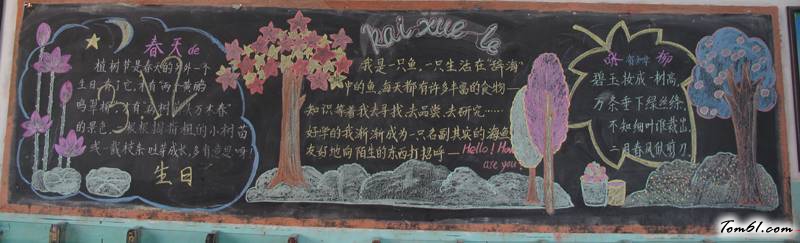 春天de
植树节是春天的另外一个
生日,有了它,才有"两个黄鹂
鸣翠柳",才有"万木春"
的景色。一根根粗粗的小树苗
生日
kai xue le
我是一只鱼,一只生活在"辞海"
中的鱼,每天都有许多丰富的食物—
知识等着我去寻找、去品尝、去研究……
好学的我渐渐成为一只名副其实的海鱼
友好地向陌生的东西打招呼—Hello! How
are you?
咏柳
碧玉妆成一树高
万条垂下绿丝绦。
不知细叶谁裁出
二月春风似剪刀
Tom61.com